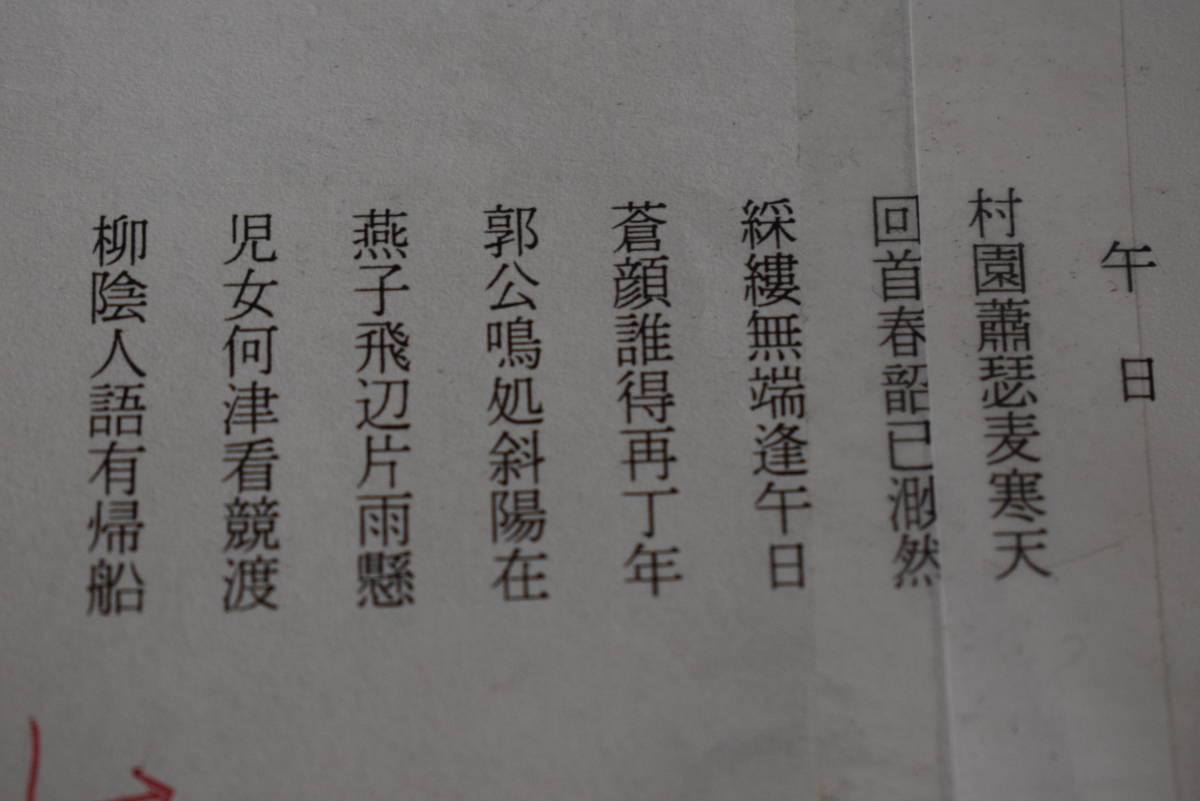 午日
村園蕭瑟麦寒天
回首春韶已渺然
綵縷無端逢午日
蒼顔誰得再丁年
郭公鳴処斜陽在
燕子飛辺片雨懸
児女何津看競渡
柳陰人語有帰船